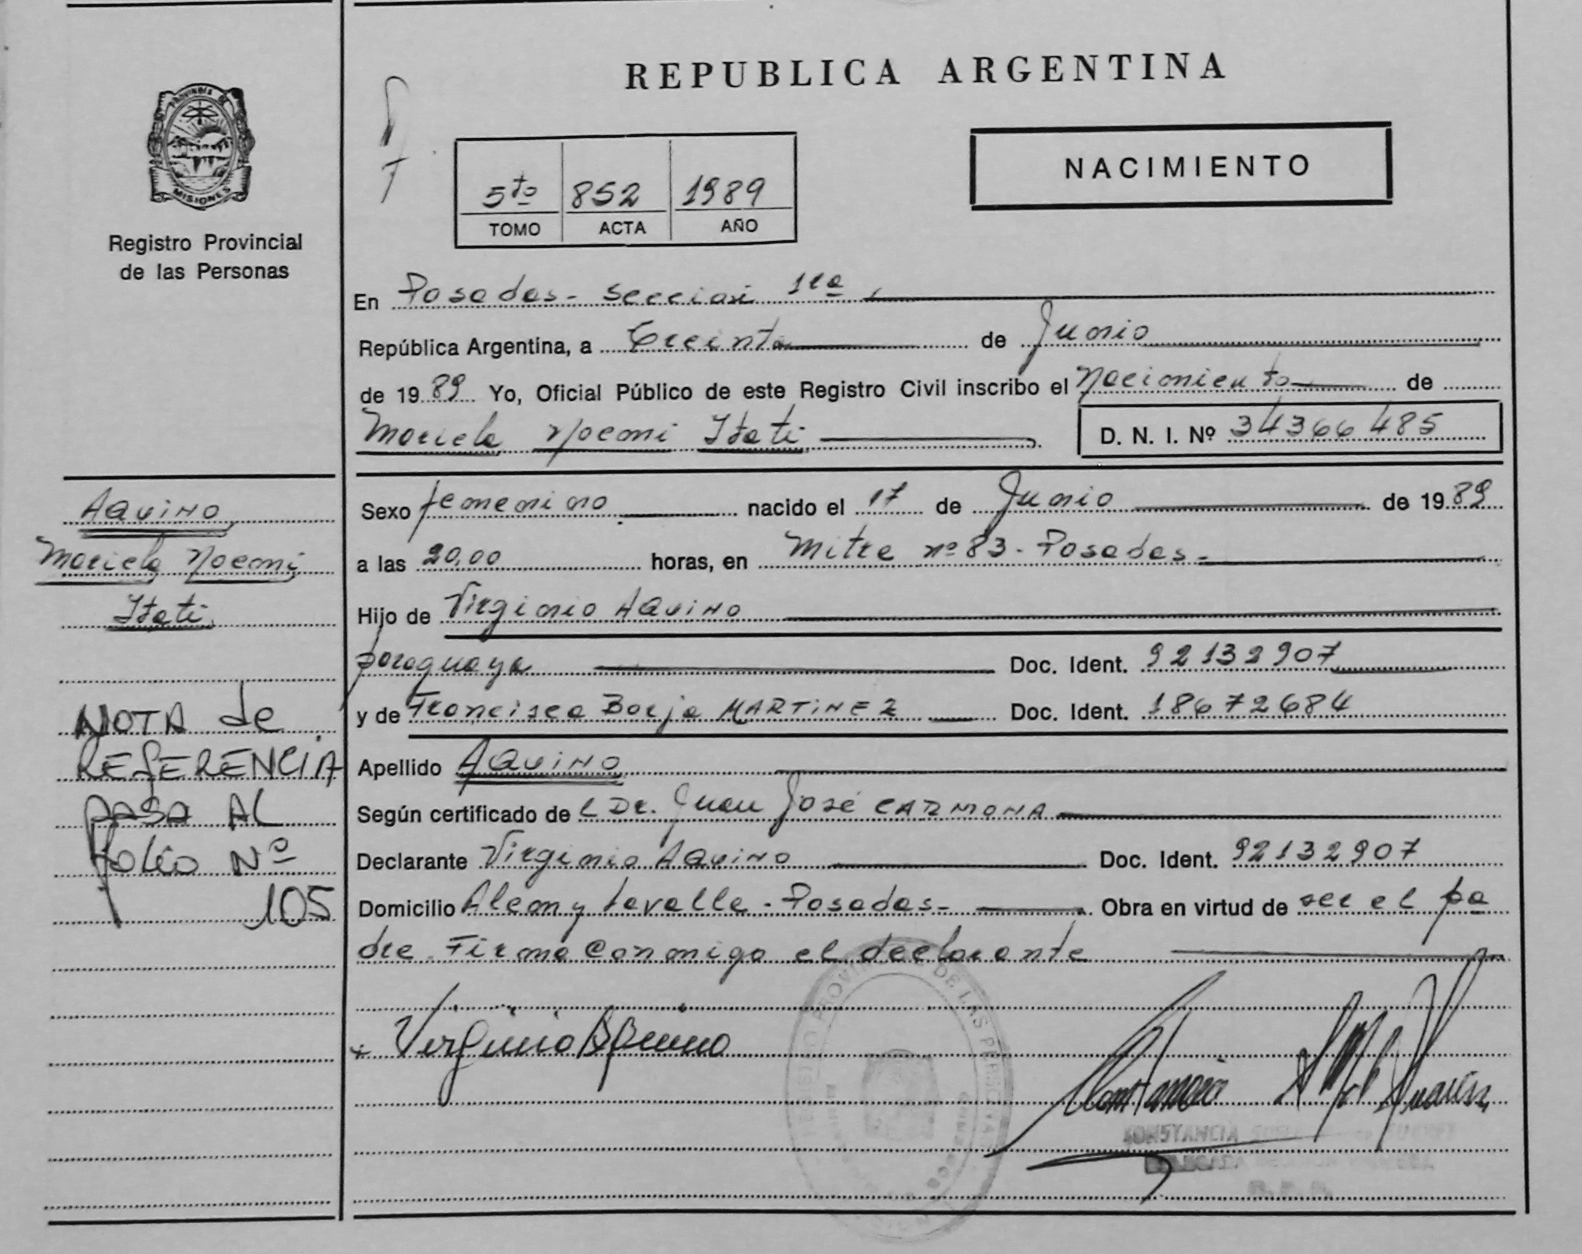 REPUBLICA ARGENTINA
PROVINCIA DE
MISIONES
Registro Provincial
de las Personas
5to 852 1989
TOMO ACTA AÑO
NACIMIENTO
En Posadas - Sección 1ra
República Argentina, a treinta de Junio
de 1989 Yo, Oficial Público de este Registro Civil inscribo el Nacimiento de
Mariela Noemi Itati D. N. I. Nº 34366485
AQUINO
Mariela Noemi
Itati
Sexo femenino nacido el 17 de Junio de 1989
a las 20,00 horas, en Mitre nº 83 - Posadas -
Hijo de Virginio AQUINO
paraguaya Doc. Ident. 92132907
y de Francisca Borja MARTINEZ Doc. Ident. 18672684
NOTA de
REFERENCIA
PASA AL
folio Nº
105
Apellido AQUINO
Según certificado del Dr. Juan José CARMONA
Declarante Virginio AQUINO Doc. Ident. 92132907
Domicilio Alem y Lavalle - Posadas - Obra en virtud de ser el pa
dre. Firma conmigo el declarante
Virginio Aquino
REGISTRO PROVINCIAL DE LAS PERSONAS
CONSTANCIA